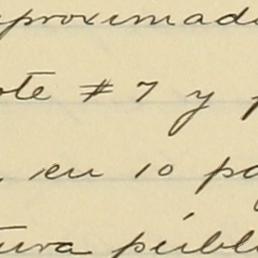 aproximada
ote # 7 y p
, en 10 pag
tura públi